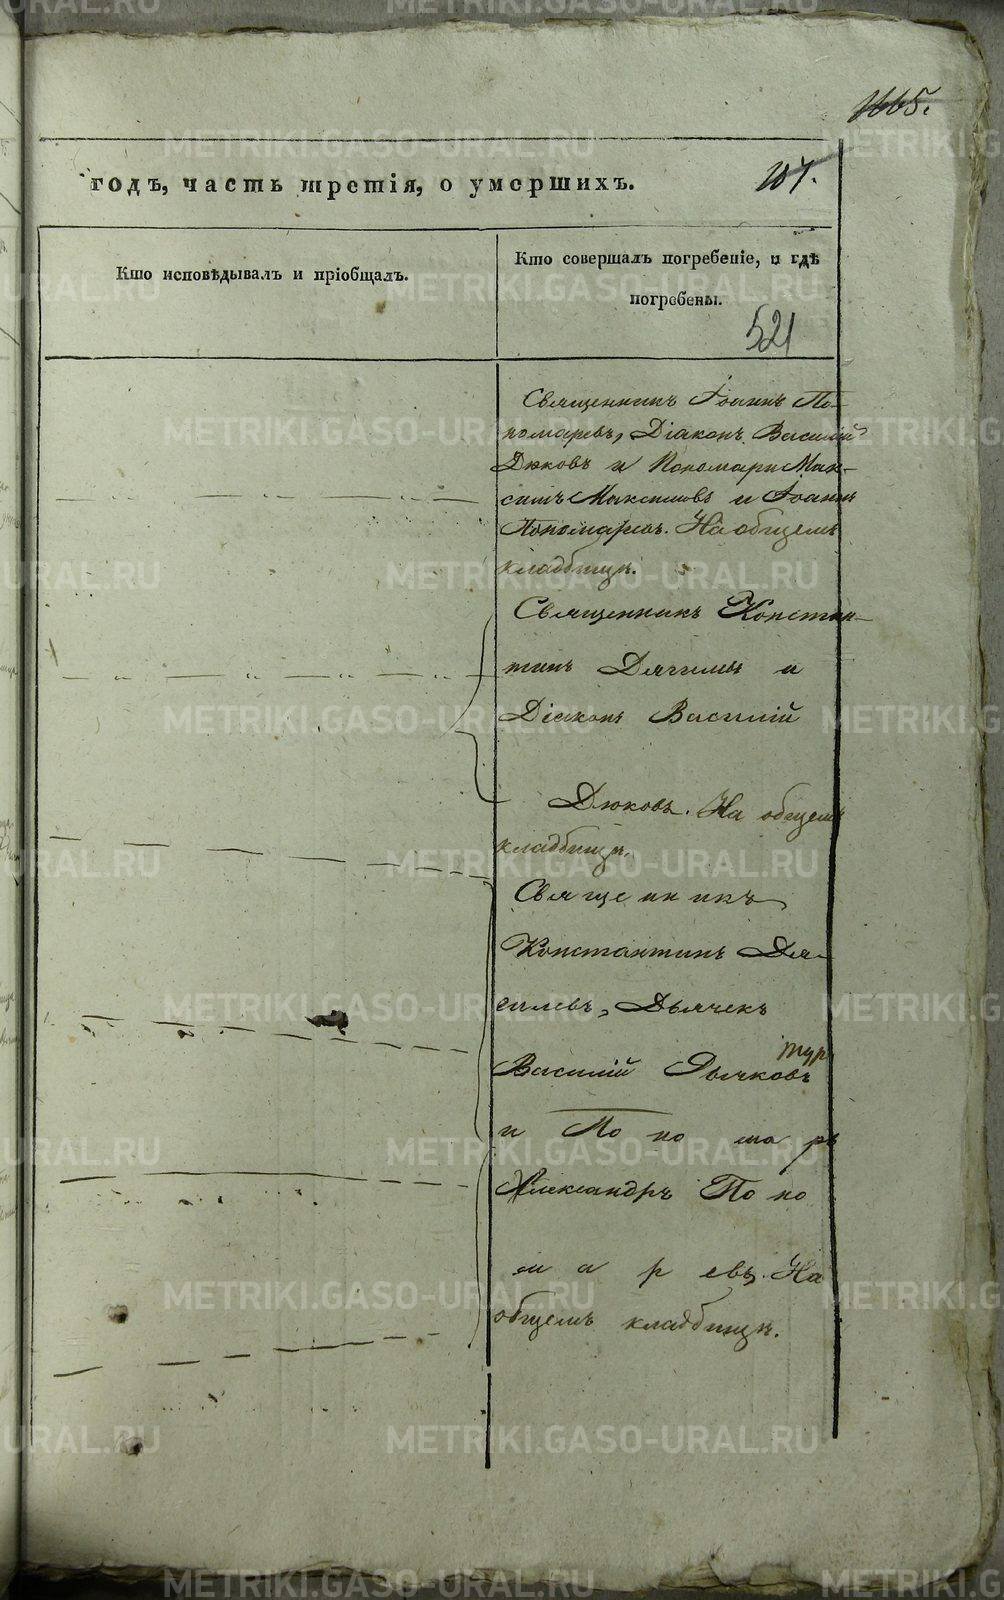 1665.
годъ, часть третія, о умершихъ.
107.
Кто исповѣдывалъ и пріобщалъ.
Кто совершалъ погребеніе, и гдѣ
погребены.
521
Священникъ Іоаннъ По-
номаревъ, Діаконъ Василій
Дюковъ и Пономари Мак-
симъ Максимовъ и Іоаннъ
Пономаревъ. На общемъ
кладбищѣ.
Священникъ Констан-
тинъ Дягилевъ и
Діаконъ Василій
Дюковъ. На общемъ
кладбищѣ.
Священникъ
Константинъ Дя-
гилевъ, Дьячекъ
Василій Дьячковъ
и Пономарь
Александръ Поно
маревъ. На
общемъ кладбищѣ.
METRIKI.GASO-URAL.RU